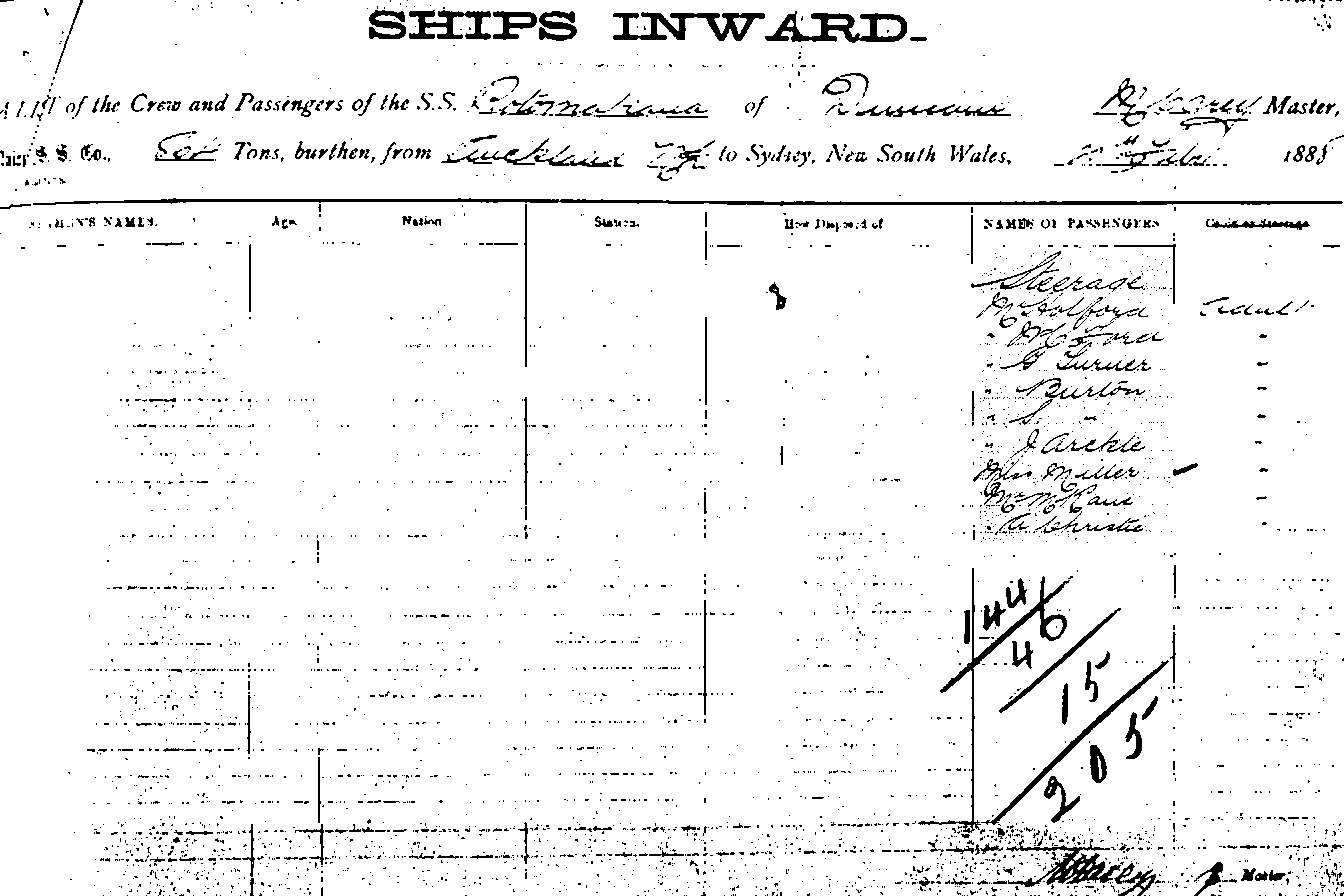 SHIPS INWARD.
A LIST of the Crew and Passengers of the S.S. Rotomahana of Dunedin M Carey Master,
S. S. Co., Tons, burthen, from Auckland NZ to Sydney, New South Wales, Febr 1888
AGENTS
SEAMEN'S NAMES. Age. Nation Station. How Disposed of NAMES OF PASSENGERS Cabin or Steerage
Steerage
Mr Holford Adult
" Ford "
" G Turner "
" Burton "
" S " "
" J Arckle "
Miss Miller "
Mr McKane "
" A Christie "
144
46
15
205
M Carey Master.